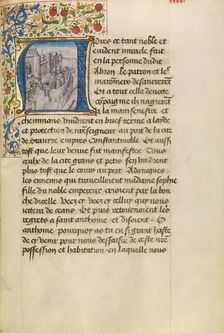 Apres ce tant noble et
evident miracle fait
en la personne dudit
Abron Le patron et les
maronniers de sancerent
Et a tout celle deuote
compaignie ilz nagerent
par la main senestre et
cheminans vindrent en brief terme a lande
et protection de nostre seigneur au port de la cite de
Stauice empres Constantinoble Et aussi
tost que leur venue fut manifestee Tous
ceulx de la cite grans et petis Sen vindrent
plus tost courans que le pas Adonques
les ennemis qui trauailloient madame sophie
fille du noble empereur crioient par la bou
che dicelle Vecy cy vecy cy celluy qui nous
vient de ceans Et puis retournoient les
regretz a saint anthoine et disoient O
anthoine pourquoy as tu si grant haste
de cy venir pour nous dessaisir de ceste nostre
possession et habitation en laquelle nous